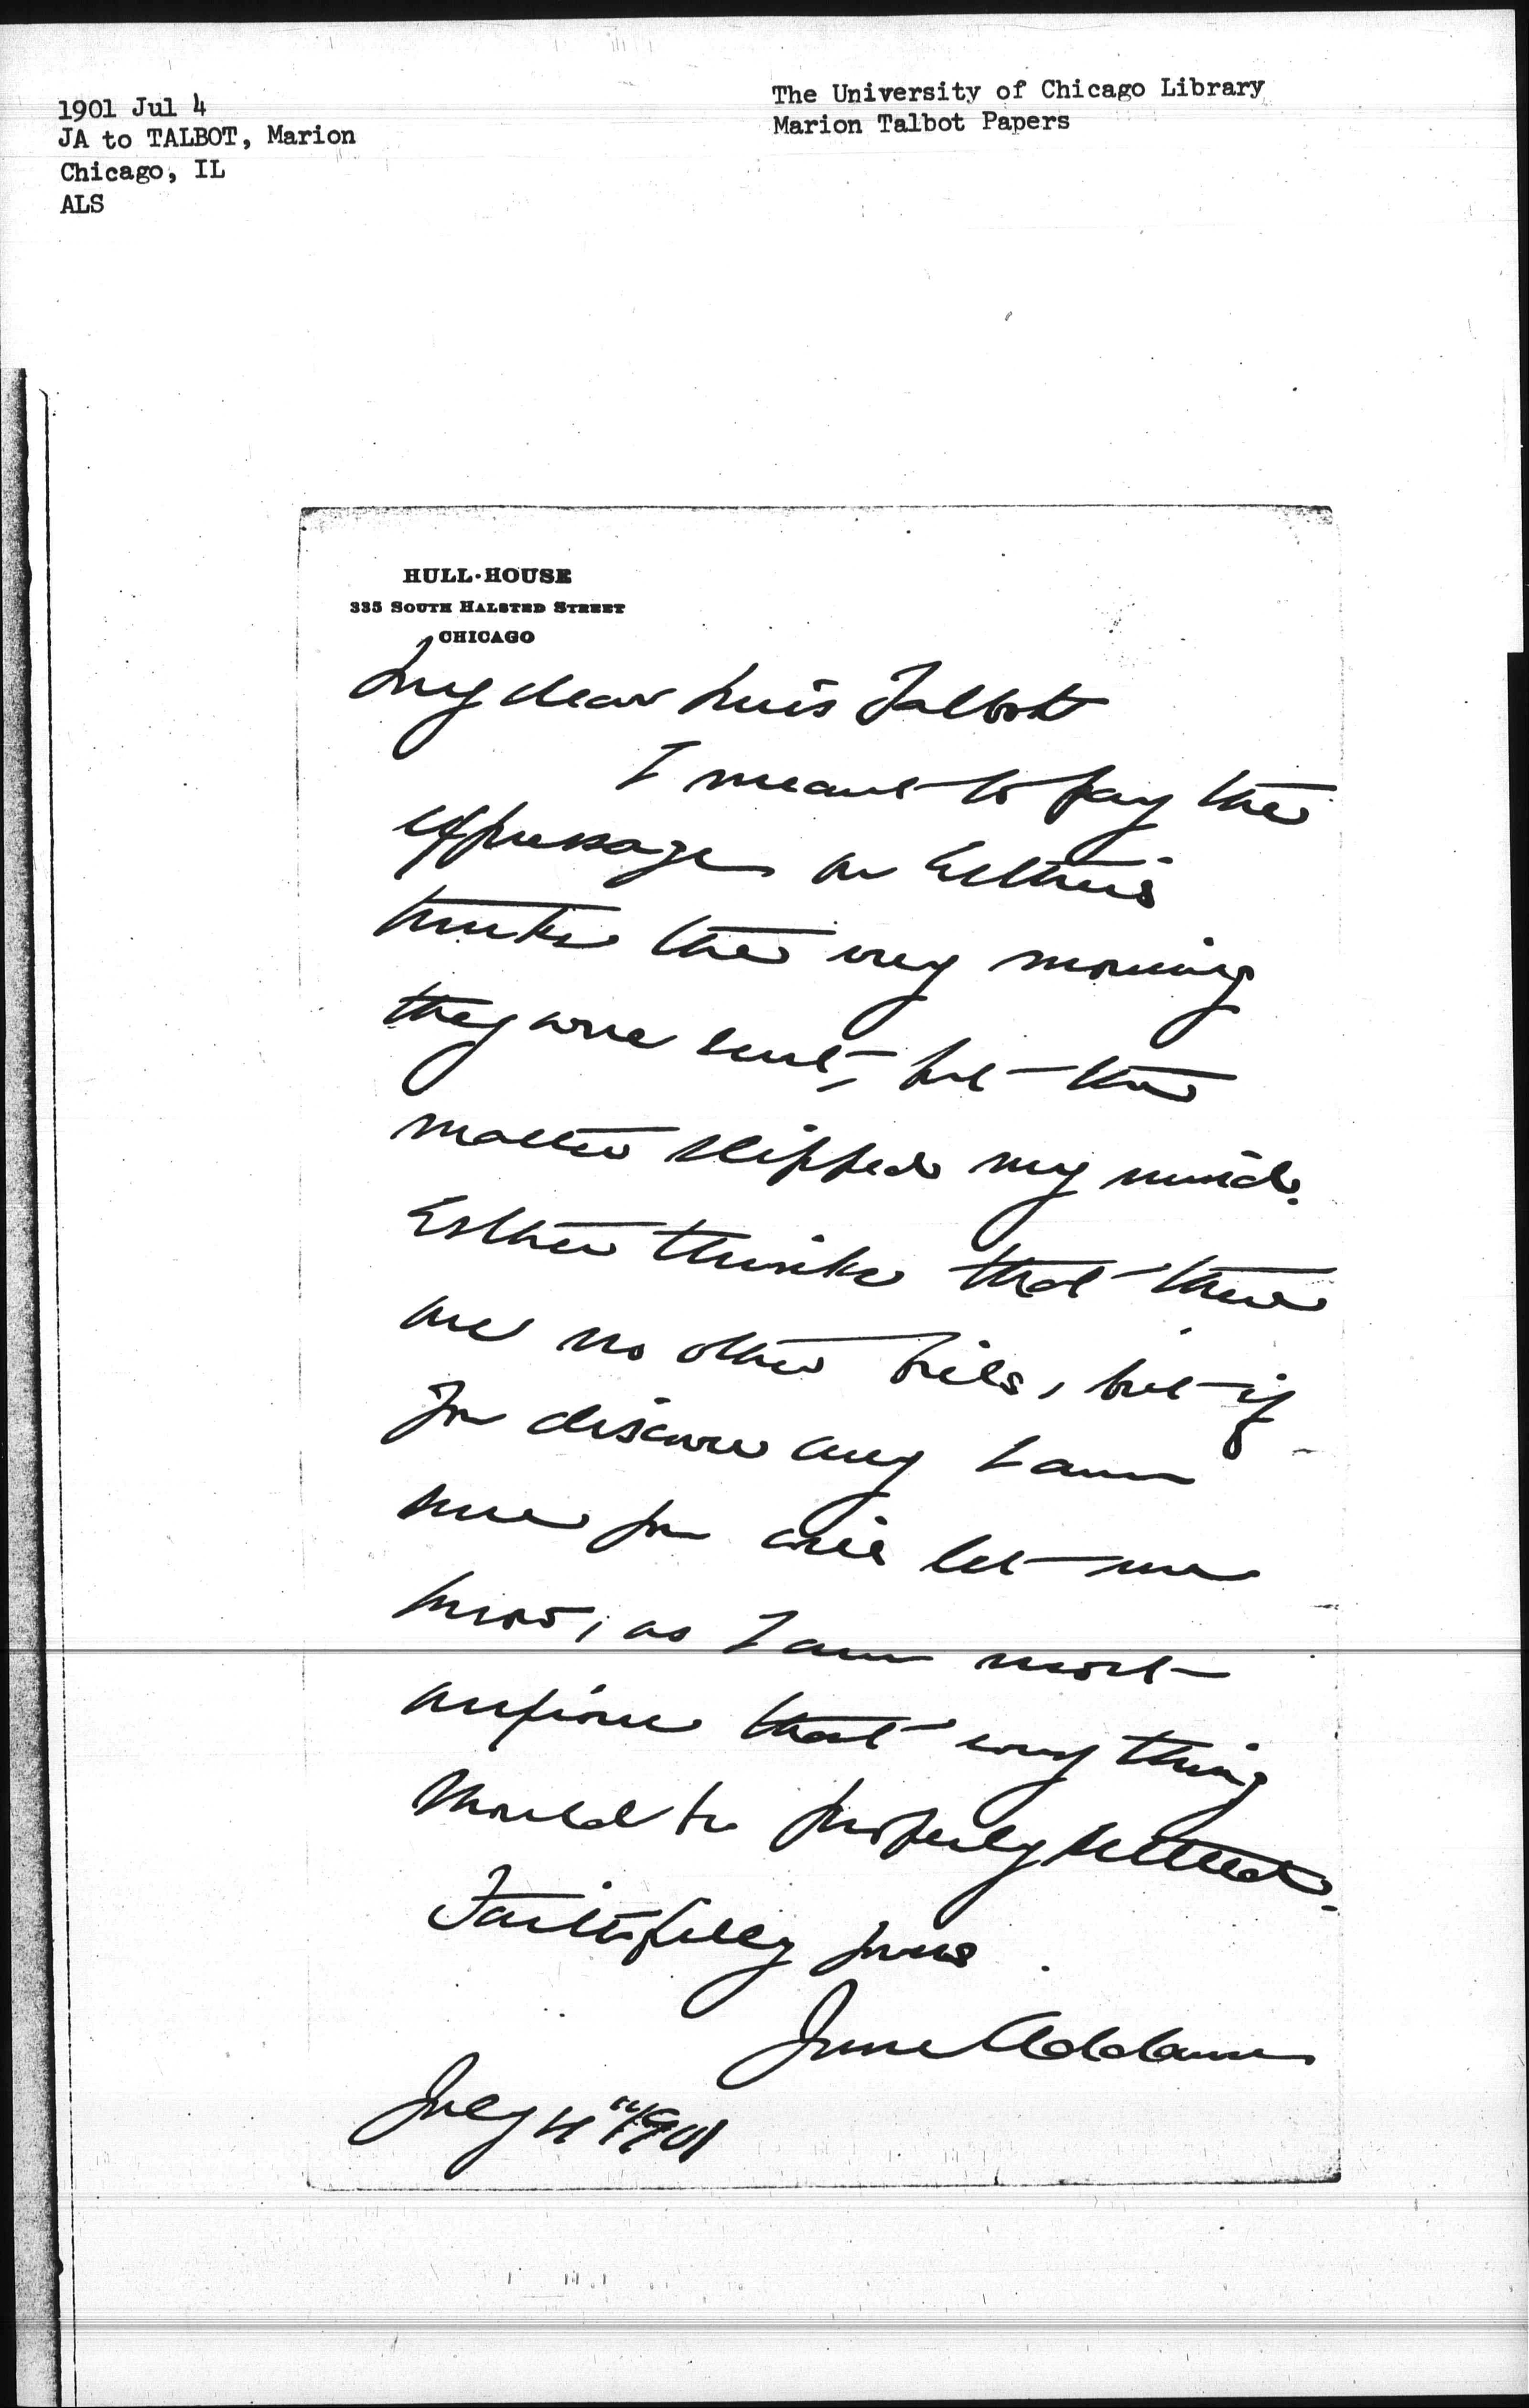 1901 Jul 4
JA to TALBOT, Marion
Chicago, IL
ALS
The University of Chicago Library
Marion Talbot Papers
HULL-HOUSE
335 SOUTH HALSTED STREET
CHICAGO
My dear Miss Talbot
I meant to pay the
expressage on Esther's
trunks the very morning
they were sent, but the
matter slipped my mind.
Esther thinks that there
are no other bills, but if
you discover any I am
sure you will let me
know, as I am most
anxious that every thing
should be properly settled.
Faithfully yours
Jane Addams
July 4" 1901